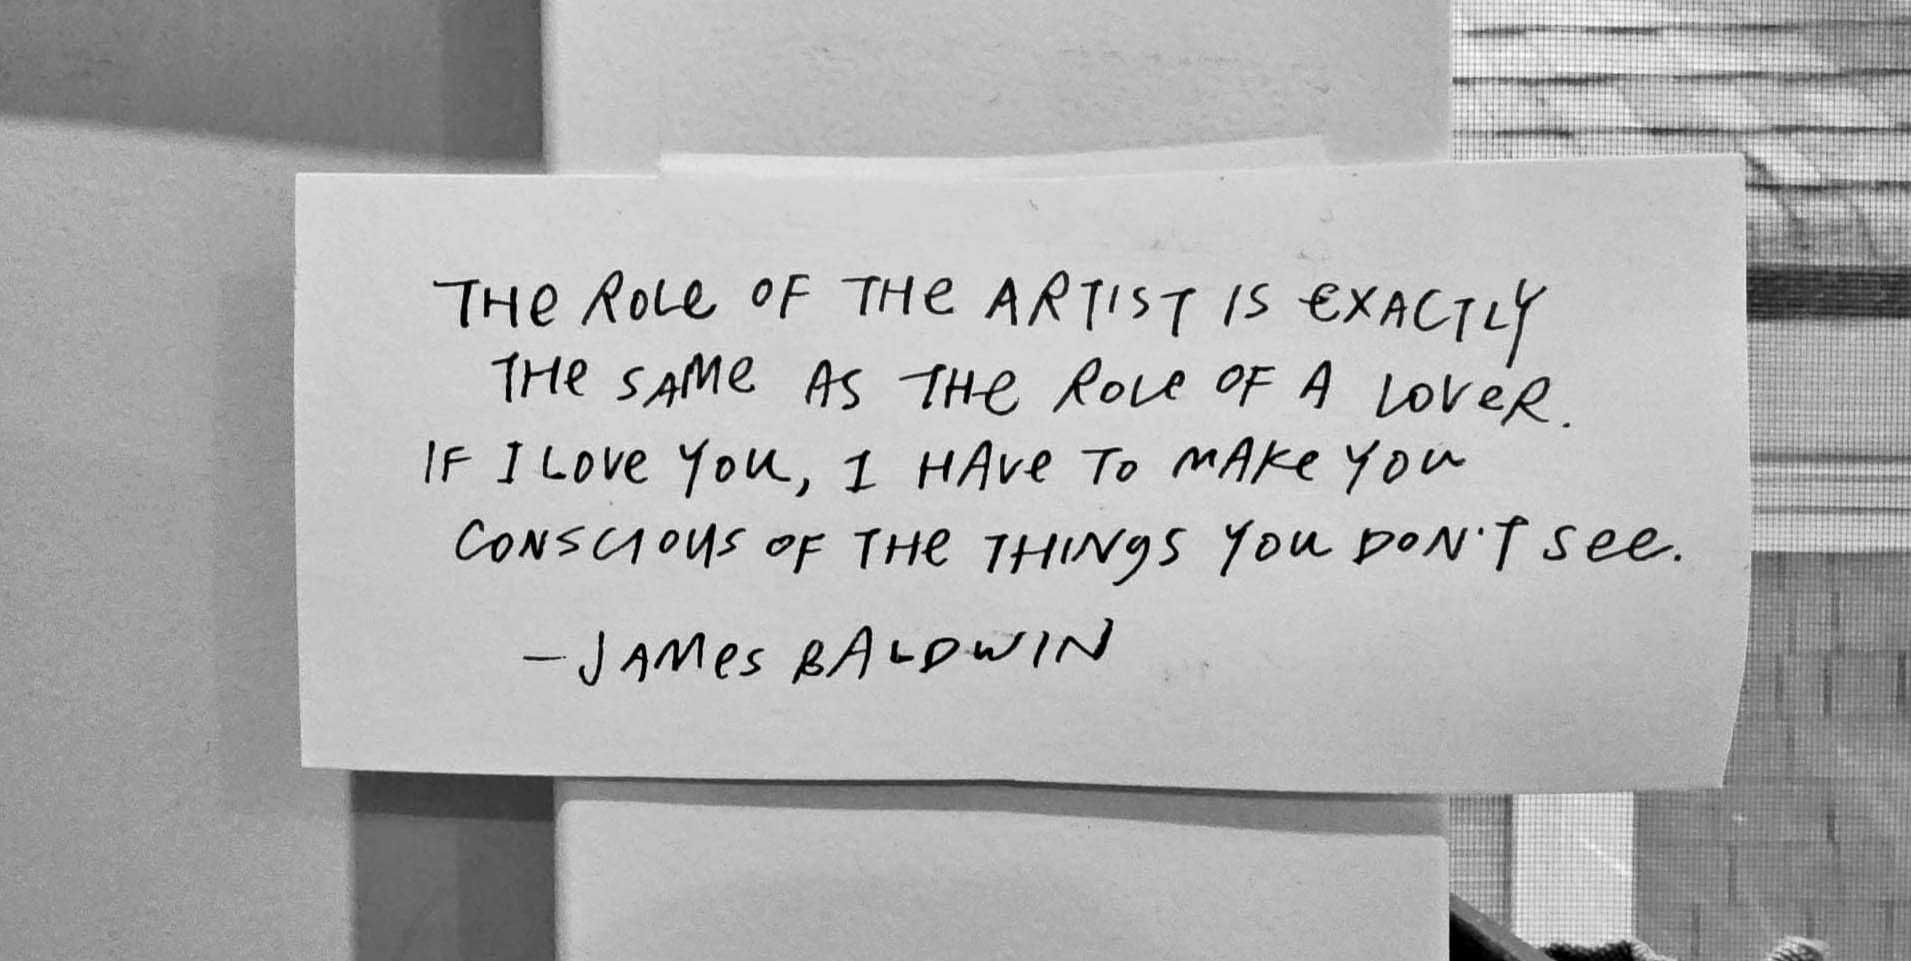 THE ROLE OF THE ARTIST IS EXACTLY
THE SAME AS THE ROLE OF A LOVER.
IF I LOVE YOU, I HAVE TO MAKE YOU
CONSCIOUS OF THE THINGS YOU DON'T SEE.
–JAMES BALDWIN